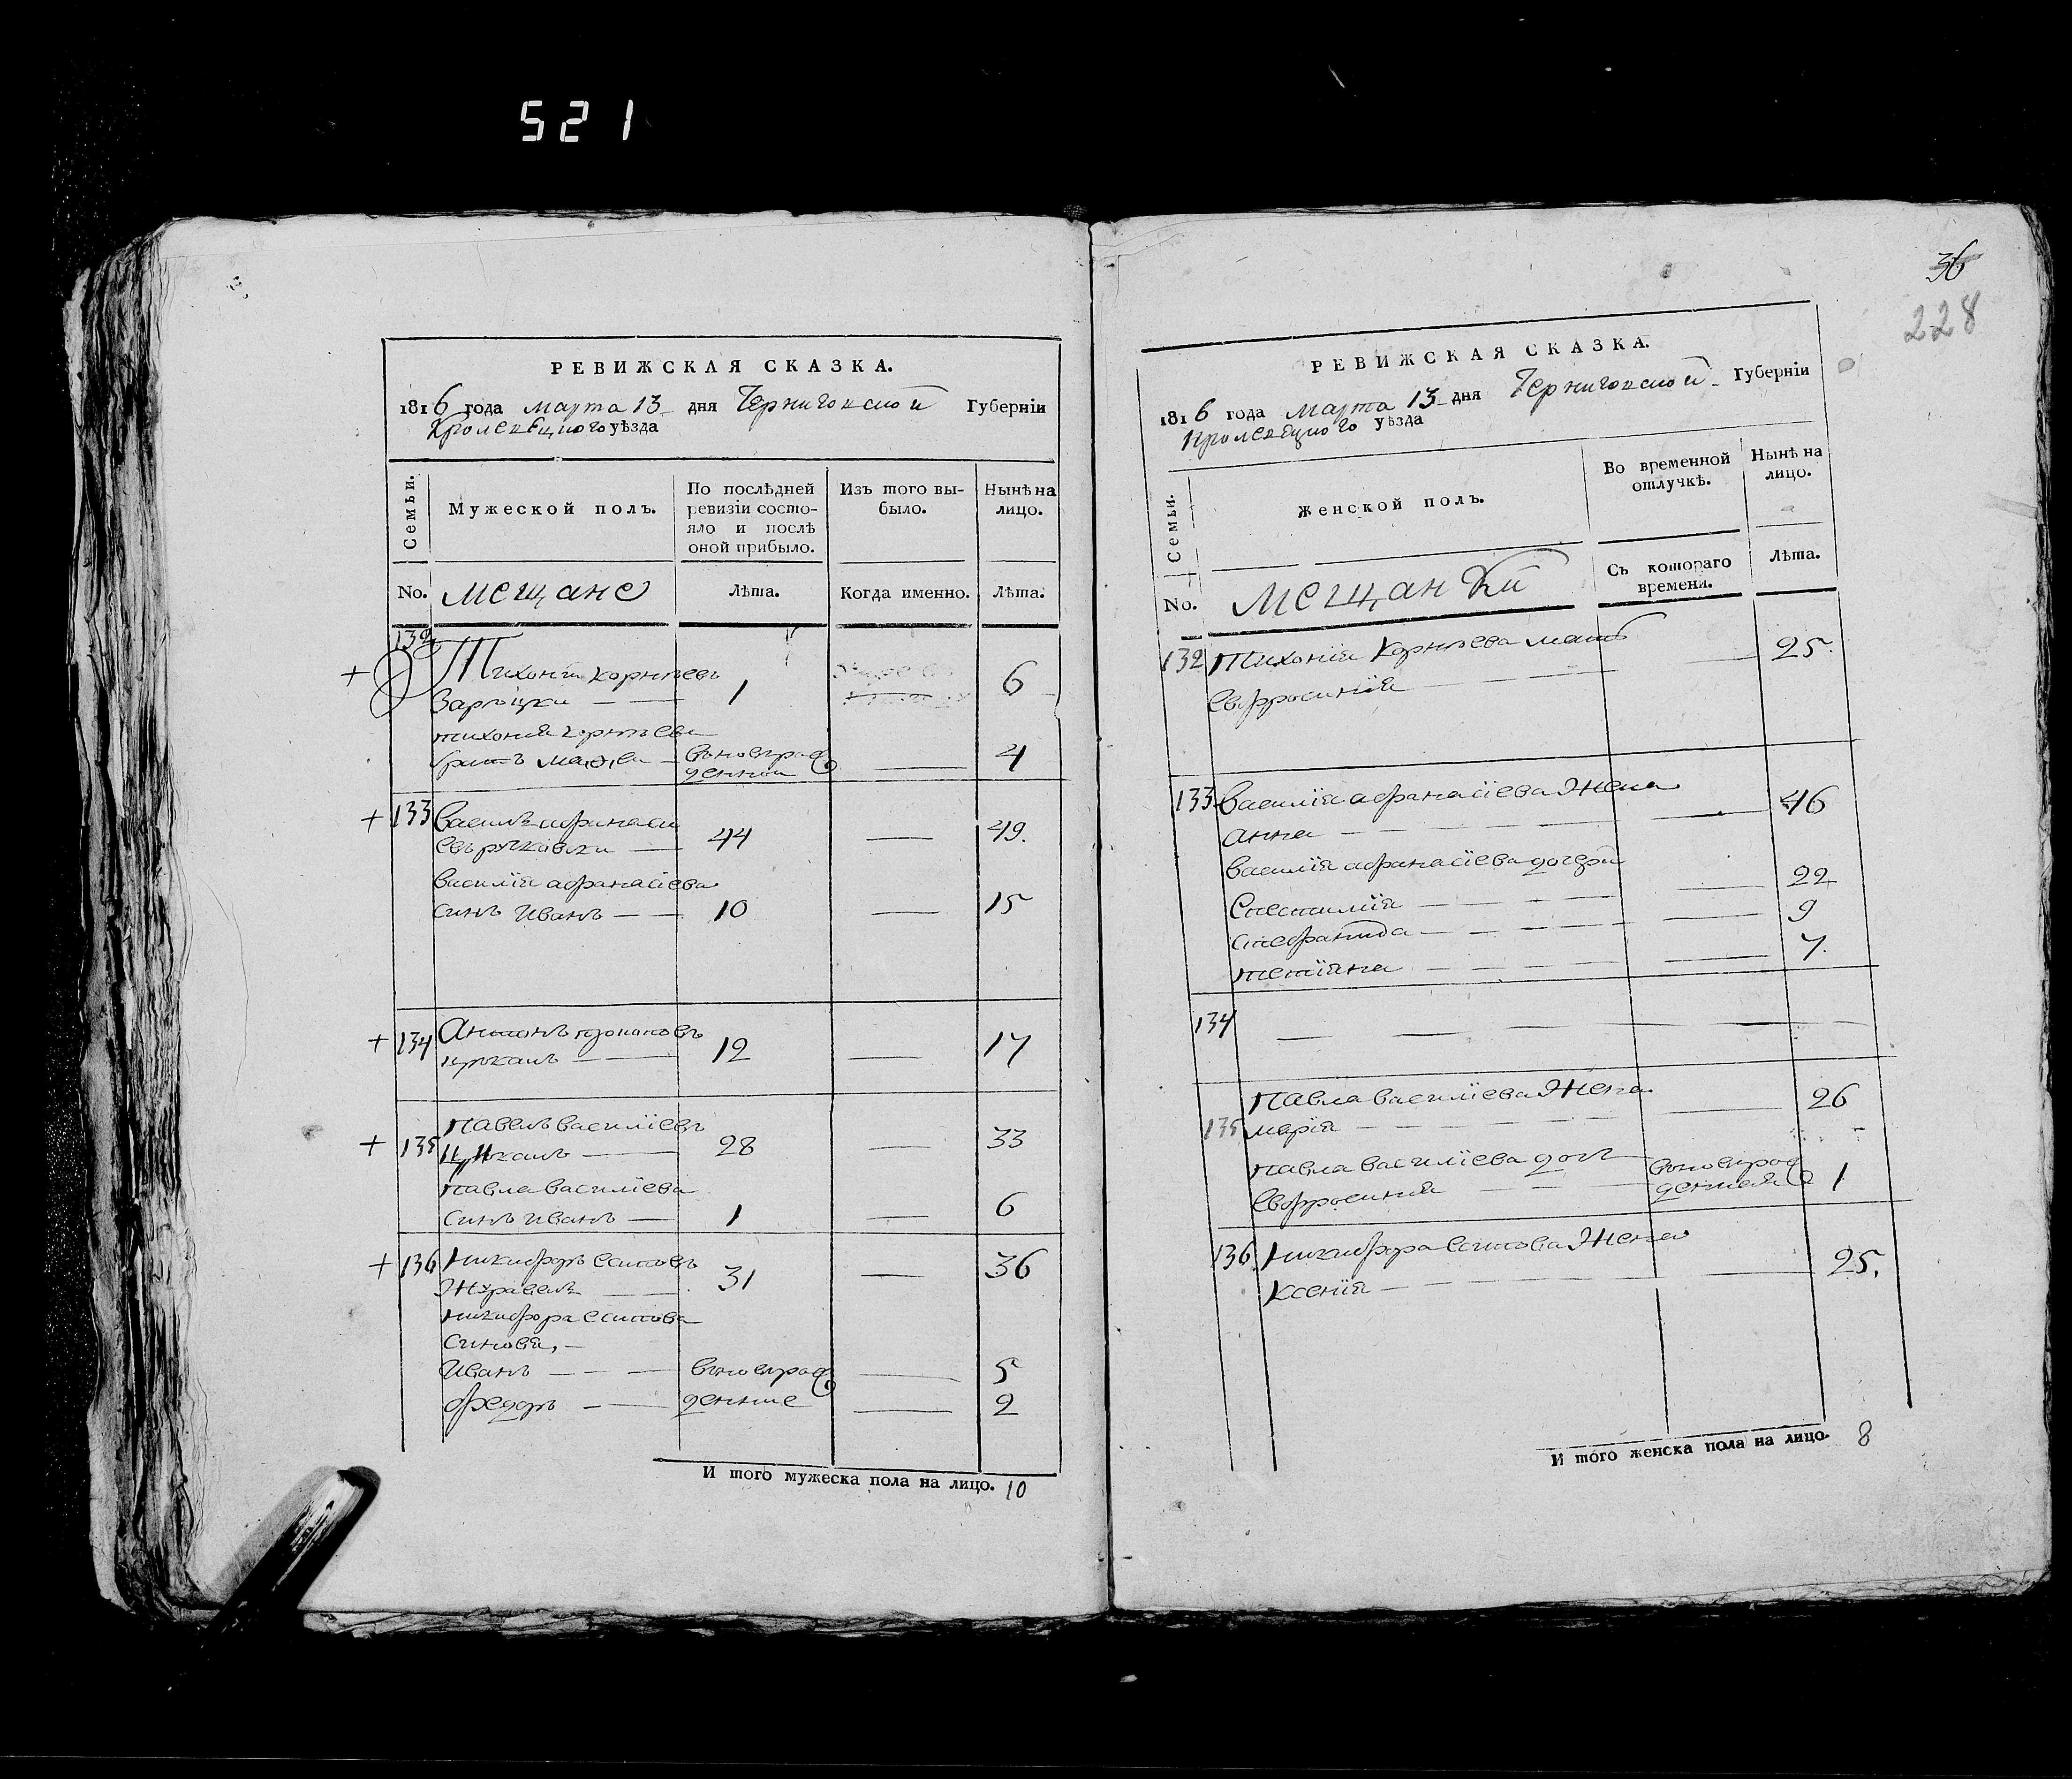 521
РЕВИЖСКАЯ СКАЗКА.
1816 года марта 13 дня Черниговской Губерніи
Кролевецкого уѣзда
Семьи.
Мужеской полъ.
По послѣдней ревизіи состояло и послѣ оной прибыло.
Изъ того выбыло.
Нынѣ на лицо.
No. мещане
Лѣта.
Когда именно.
Лѣта.
132
Тихоній Корнѣевъ
1 6
тихонія корнѣева
братъ новорож
денній 4
133 Василь афанасі
44 49.
василія афанасіева
синъ иванъ 10 15
134 Антонъ
цѣкалъ 12 17
135 павелъ василіевъ
28 33
павла василіева
синъ иванъ 1 6
136 никифоръ есиповъ
журавель 31 36
никифора есипова
синовя,
иванъ новорож 5
федоръ денние 2
И того мужеска пола на лицо. 10
36
228
РЕВИЖСКАЯ СКАЗКА.
1816 года марта 13 дня Черниговской Губерніи
кролевецкого уѣзда
Семьи.
Женской полъ.
Во временной отлучкѣ.
Нынѣ на лицо.
No. мещанки
Съ котораго времени.
Лѣта.
132 Тихонія Корнѣева мать 25.
евфросинія
133 василія афанасіева жена 46
анна
василія афанасіева дочери
22
9
татіяна 7.
134
павла василіева жена 26
135 марія
павла василіева дочь новорож
евфросинія денная 1
136 никифора есипова жена
ксенія 25.
И того женска пола на лицо. 8